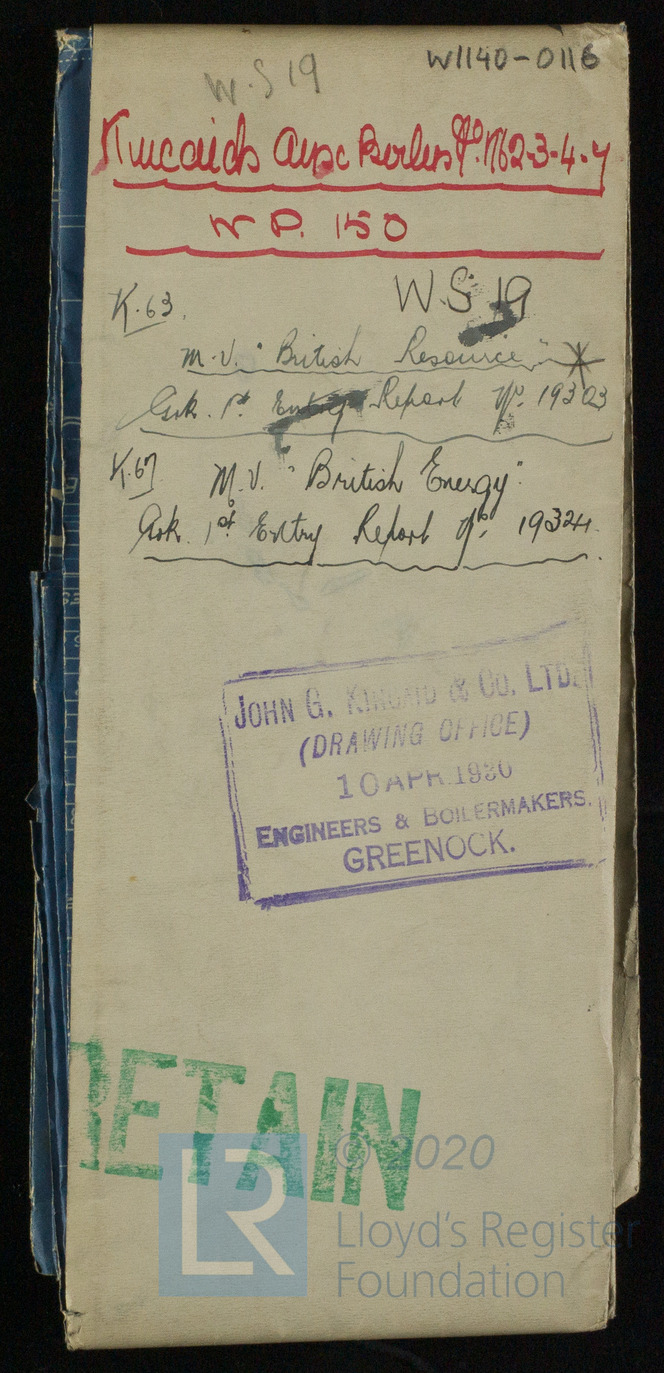 W.S 19
W1140-0116
Kincaids Aux Boilers No. 162-3-4-7
W P. 150
K.63.
WS 19
M.V. "British Resource"
Gok. 1st Entry Report No. 19303
K.67
M.V. "British Energy".
Gok. 1st Entry Report No. 19324.
JOHN G. KINCAID & CO. LTD.
(DRAWING OFFICE)
10 APR. 1930
ENGINEERS & BOILERMAKERS.
GREENOCK.
RETAIN
© 2020
LR
Lloyd's Register
Foundation